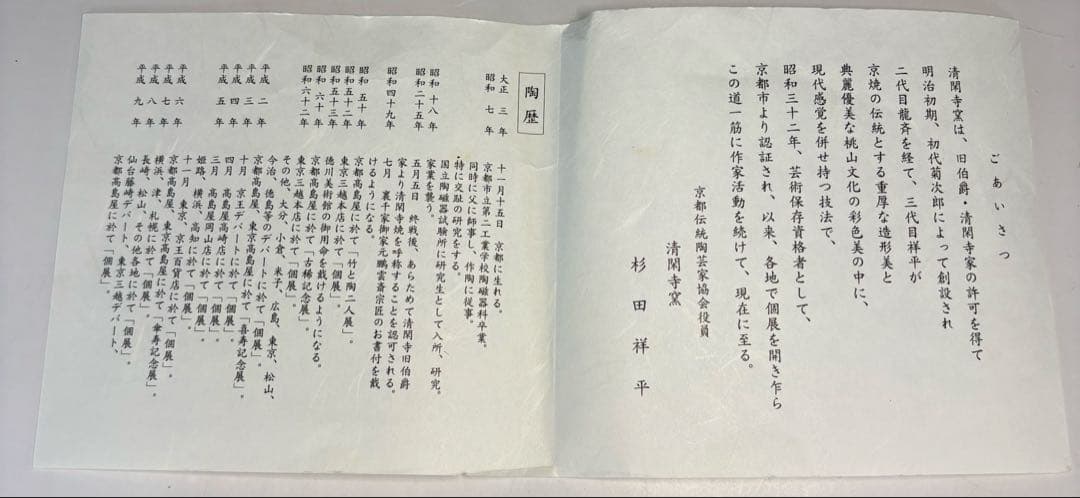 ごあいさつ
清閑寺窯は、旧伯爵・清閑寺家の許可を得て
明治初期、初代菊次郎によって創設され
二代目龍斉を経て、三代目祥平が
京焼の伝統とする重厚な造形美と
典麗優美な桃山文化の彩色美の中に、
現代感覚を併せ持つ技法で、
昭和三十二年、芸術保存資格者として、
京都市より認証され、以来、各地で個展を開き乍ら
この道一筋に作家活動を続けて、現在に至る。
京都伝統陶芸家協会役員
清閑寺窯
杉田祥平
陶歴
大正三年 十一月十五日 京都に生れる。
昭和七年 京都市立第二工業学校陶磁器科卒業。
同時に父に師事し、作陶に従事。
特に交趾の研究をする。
昭和十八年 国立陶磁器試験所に研究生として入所、研究。
家業を襲う。
昭和二十五年 五月五日 終戦後、あらためて清閑寺旧伯爵
家より清閑寺焼を呼称することを認可される。
昭和四十九年 七月 裏千家御家元鵬雲斎宗匠のお書付を戴
けるようになる。
昭和五十年 京都高島屋に於て「竹と陶二人展」。
昭和五十二年 東京三越本店に於て「個展」。
昭和五十三年 徳川美術館の御用命を戴けるようになる。
昭和六十年 京都高島屋に於て「古稀記念展」。
昭和六十二年 東京三越本店に於て「個展」。
その他、大分、小倉、米子、広島、東京、松山、
今治、徳島等のデパートに於て「個展」。
平成二年 京都高島屋、東京高島屋に於て「喜寿記念展」。
平成三年 京王デパートに於て「個展」。
平成四年 四月 高島屋高崎店に於て「個展」。
平成五年 三月 高島屋岡山店に於て「個展」。
姫路、横浜、高知に於て「個展」。
平成六年 十一月 東京、京王百貨店に於て「個展」。
平成七年 京都高島屋、東京高島屋に於て「傘寿記念展」。
平成八年 横浜、津、札幌に於て「個展」。
長崎、松山、その他各地に於て「個展」。
平成九年 仙台藤崎デパート、東京三越デパート、
京都高島屋に於て「個展」。